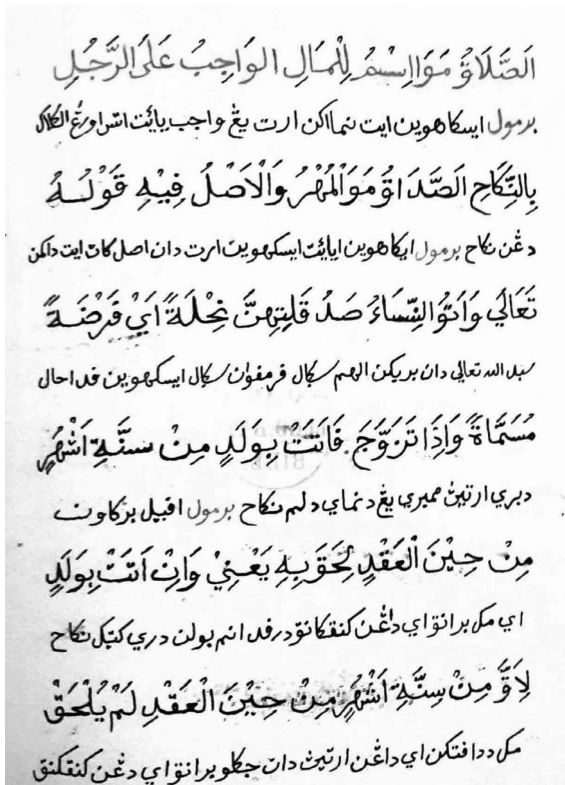 اَلصَّلَاقُ هَوَ اِسْمُ لِلْمَالِ الوَاجِبُ عَلَى الرَّجُلِ
برمول ايسكاهوين ايت نمااكن ارت يڠ واجب يائت اتس اورڠ
بِالنِّكَاحِ اَلصَّدَاقُ هَوَ الْمَهْرُ وَالْاَصْلُ فِيْهِ قَوْلُهُ
دڠن نكاح برمول ايكاهوين ايايت ايسكهوين ارت دان اصل كات ايت
تَعَالَي وَاَتُوالنِّسَاءُ صَدُ قَلِتِهِنَّ نِحْلَةً اَيْ فَرْضَةً
سبد الله تعالي دان بريكن الهم سكال فرمفوان سكال ايسكهوين فد احال
مُسَمَّاةً وَاِذَا تَزَوَّجَ فَاَتَتْ بِوَلَدٍ مِنْ سِتَّةِ اَشْهُرٍ
دبري ارتين ممبري يڠ دنماي دلم نكاح برمول افبيل
مِنْ حِيْنَ الْعَقْدِ لَحَقَ بِهِ يَعْنِيْ وَاِنْ اَتَتْ بِوَلَدٍ
اي مك برانق اي داڠن كنقكانق در فد انم بولن دري كتيك نكاح
لِاَقَّ مِنْ سِتَّةِ اَشْهُرٍ مِنْ حِيْنَ الْعَقْدِ لَمْ يُلْحَقْ
مك ددافتكن اي داڠن ارتين دان جكلو برانق اي دڠن كنقكنق